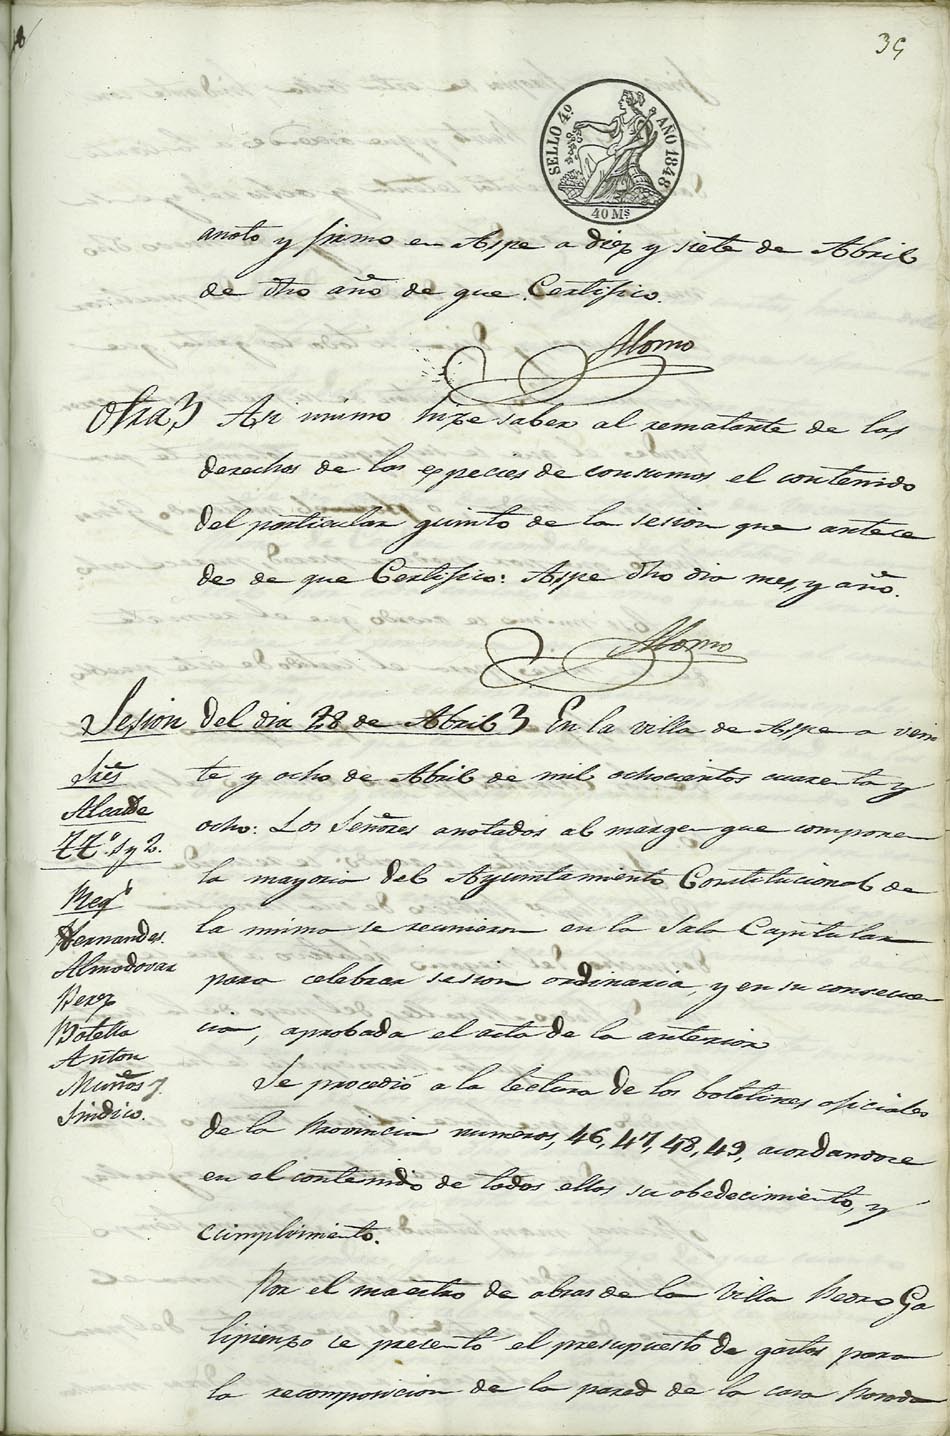 39
SELLO 4º AÑO 1848
40 Ms
anoto y firmo en Aspe a diez y siete de Abril
de dho año de que Certifico.
Otra3 Asi mismo hize saber al rematante de los
derechos de las especies de consumos el contenido
del particular quinto de la sesion que antece
de de que Certifico: Aspe dho dia mes, y año.
Sesion del dia 28 de Abril3 En la villa de Aspe a vein
te y ocho de Abril de mil ochocientos cuarenta y
ocho: Los Señores anotados al margen que componen
la mayoria del Ayuntamiento Constitucional de
la misma se reunieron en la Sala Capitular
para celebrar sesion ordinaria, y en su consecuen
cia, aprobada el acta de la anterior
Sres
Alcalde
TT. 1 y 2.
Reg
Hernandes.
Almodovar
Perez
Botella
Anton
Muños y
Sindico.
Se procedió a la lectura de los boletines oficiales
de la Provincia numeros, 46, 47, 48, 49, acordandose
en el contenido de todos ellos su obedecimiento, y
cumplimiento.
Por el maestro de obras de la Villa Pedro Ga
lipienzo se presentó el presupuesto de gastos para
la recomposicion de la pared de la casa Posada